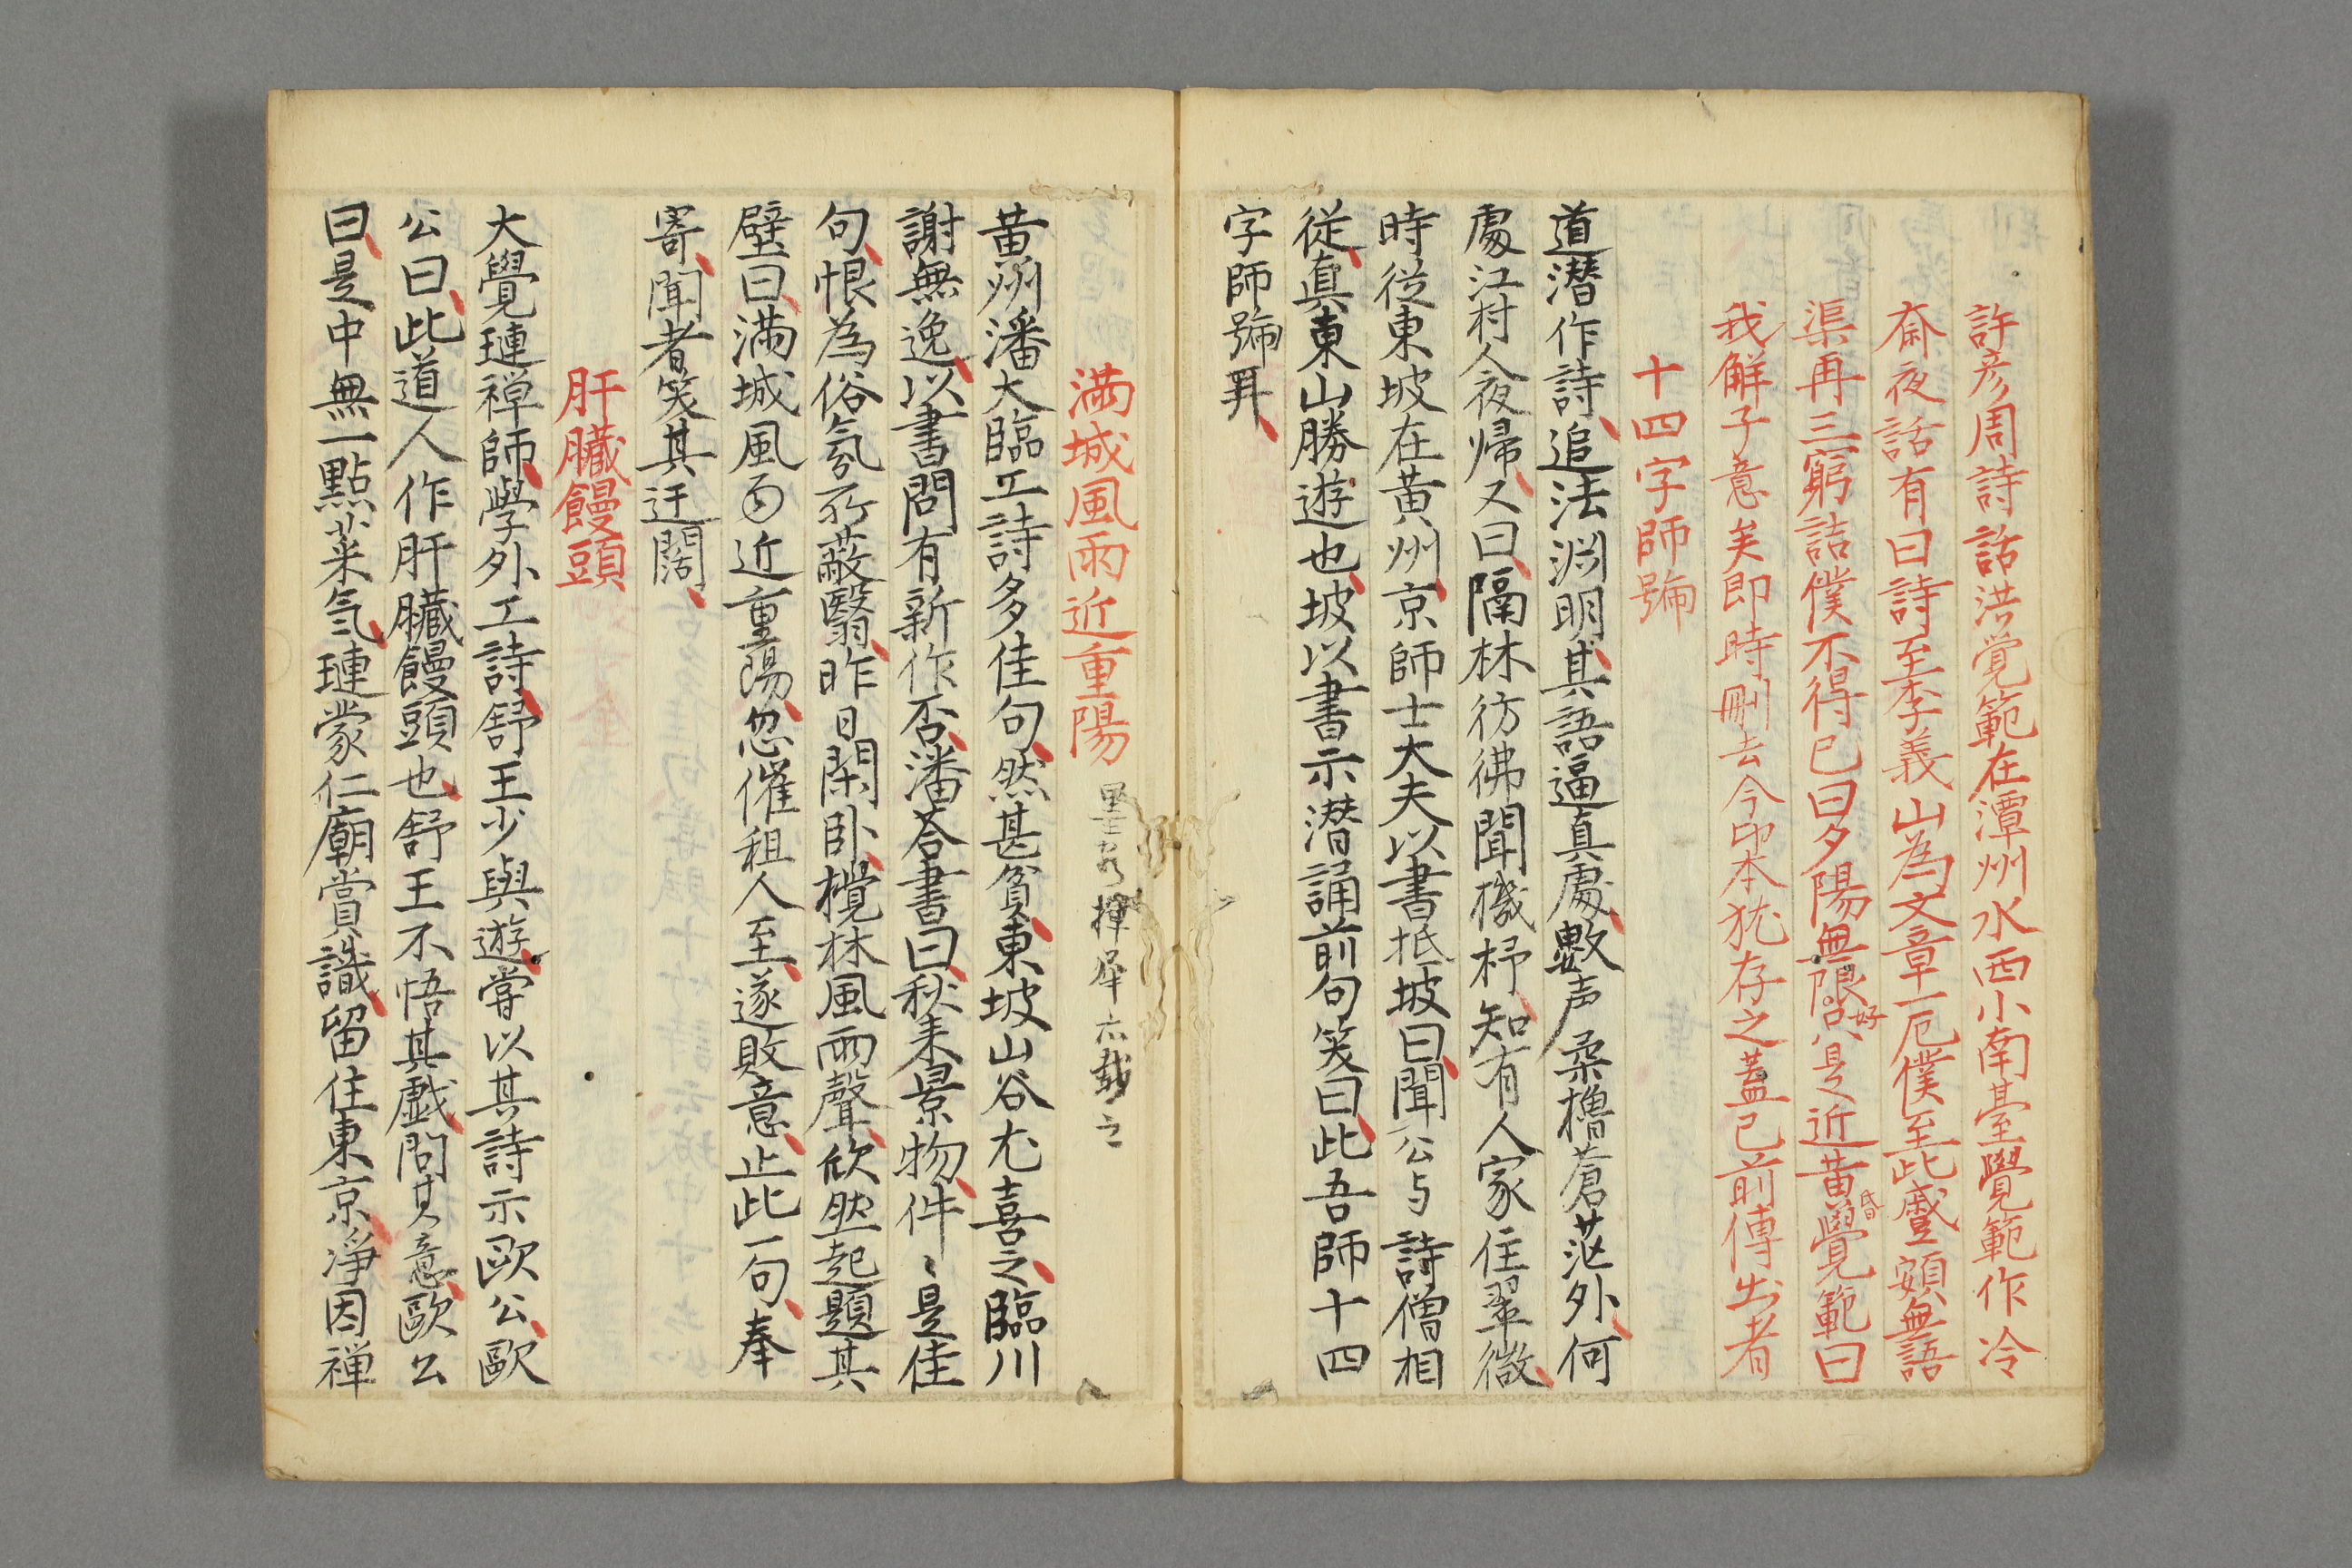 許彦周詩話洪覚範在潭州水西小南臺覺範作冷
斎夜話有曰詩至李義山為文章一厄僕至此蹙頞無語
渠再三窮詰僕不得已曰夕陽無限好只是近黄昏覺範曰
我解子意矣即時刪去今印本犹存之蓋已前傳出者
十四字師號
道潜作詩追法渕明其語逼真處數声柔櫓蒼茫外何
處江村人夜帰又曰隔林彷彿聞機杼知有人家住翠微
時從東坡在黄州京師士大夫以書抵坡曰聞公与詩僧相
從真東山勝遊也坡以書示潜誦前句笑曰此吾師十四
字師號耳
満城風雨近重陽
黄州潘大臨工詩多佳句然甚貧東坡山谷尤喜之臨川
謝無逸以書問有新作否潘荅書曰秋来景物件〻是佳
句恨為俗氛所蔽翳昨日閑卧攪林風雨聲欣然起題其
壁曰満城風雨近重陽忽催租人至遂敗意止此一句奉
寄聞者笑其迂闊
肝臓饅頭
大覺璉禅師學外工詩舒王少與遊嘗以其詩示歐公歐
公曰此道人作肝臓饅頭也舒王不悟其戯問其意歐公
曰是中無一點菜氣璉蒙仁廟賞識留住東京淨因禅